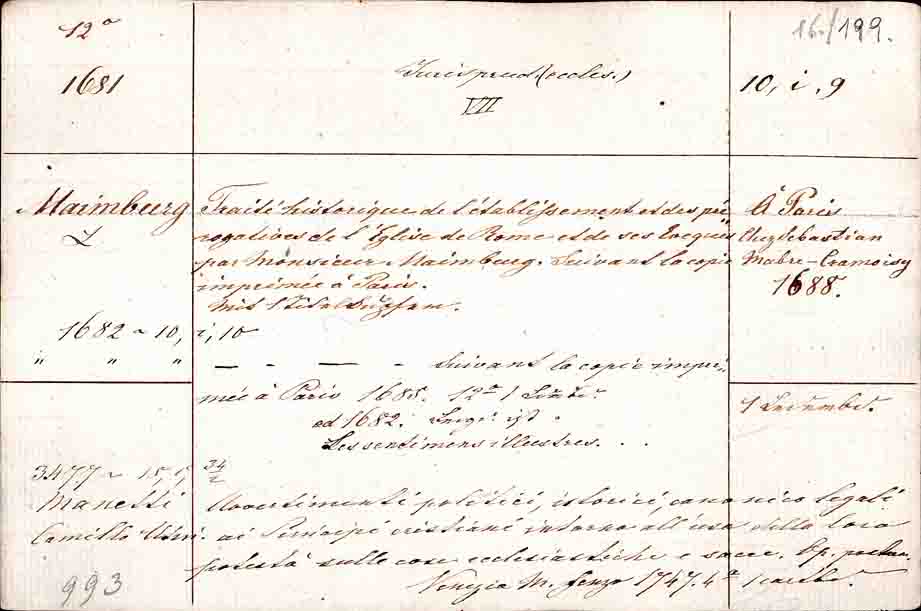 12°
1681
Jurisprud. (eccles.)
VII
16./199.
10, i, 9
Maimburg
L
Traité historique de l'établissement et des pré
rogatives de l'Eglise de Rome et de ses Evéques
par Monsieur Maimburg. Suivant la copie
imprimée à Paris.
Mit 1
À Paris
Chez Sebastian
Mabre-Cramoisy
1688.
1682 ~ 10, i, 10
" " "
— - — - Suivant la copie impri
mée à Paris 1688. 12°
ad 1682.
Les sentimens illustres. . .
3477 ~ 15, 34/2
Manetti
Camillo
Avvertimenti politici, istorici, canonico legali
ai Principi cristiani intorno all'usa della loro
potestà sulle cose ecclesiastiche e sacre. Op.
Venezia M. Fenzo 1747. 4°
993